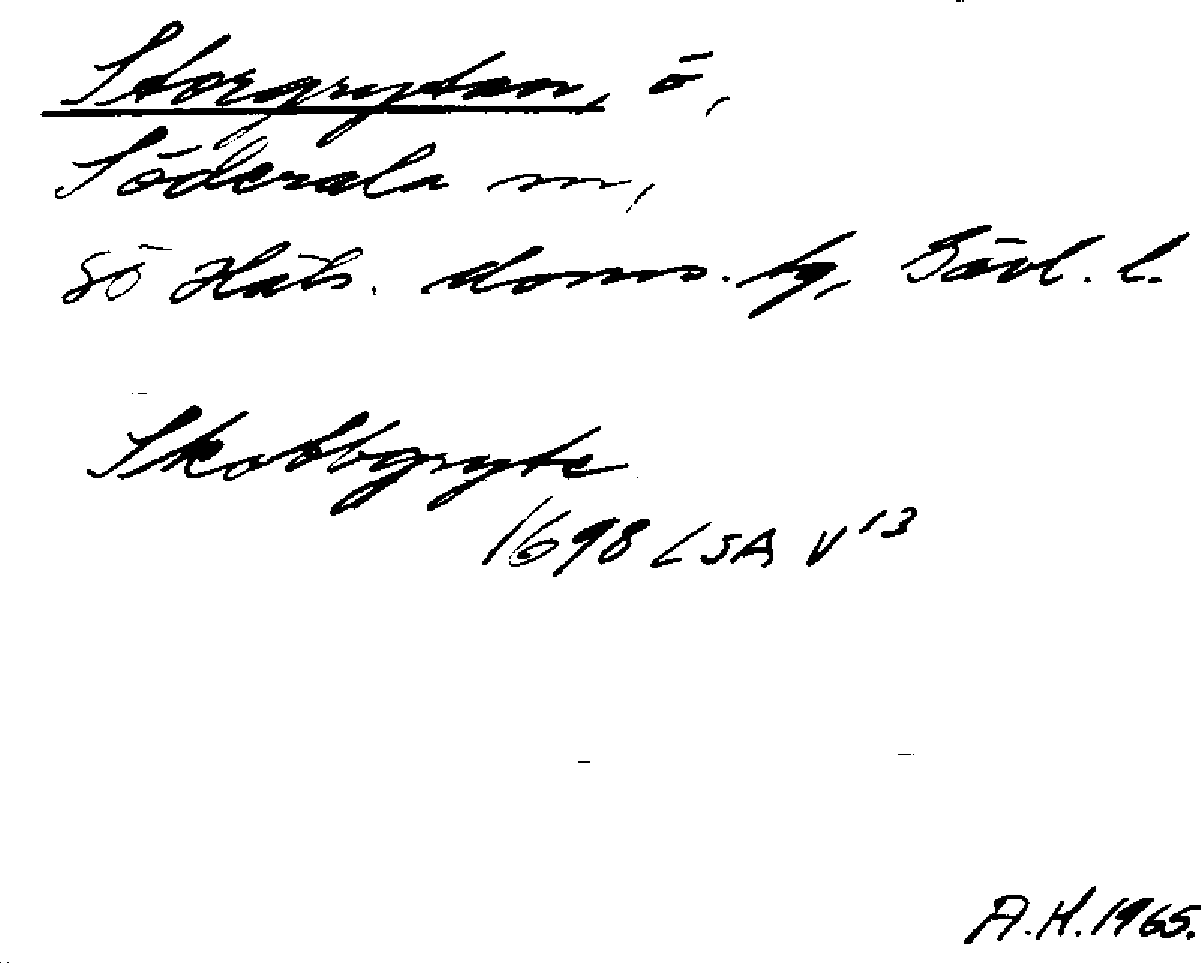 Storgrytan, ö,
Söderala sn,
SÖ Häls. doms. hg, Gävl. l.
Skottgryte
1698 LSA V 13
A.H. 1965.